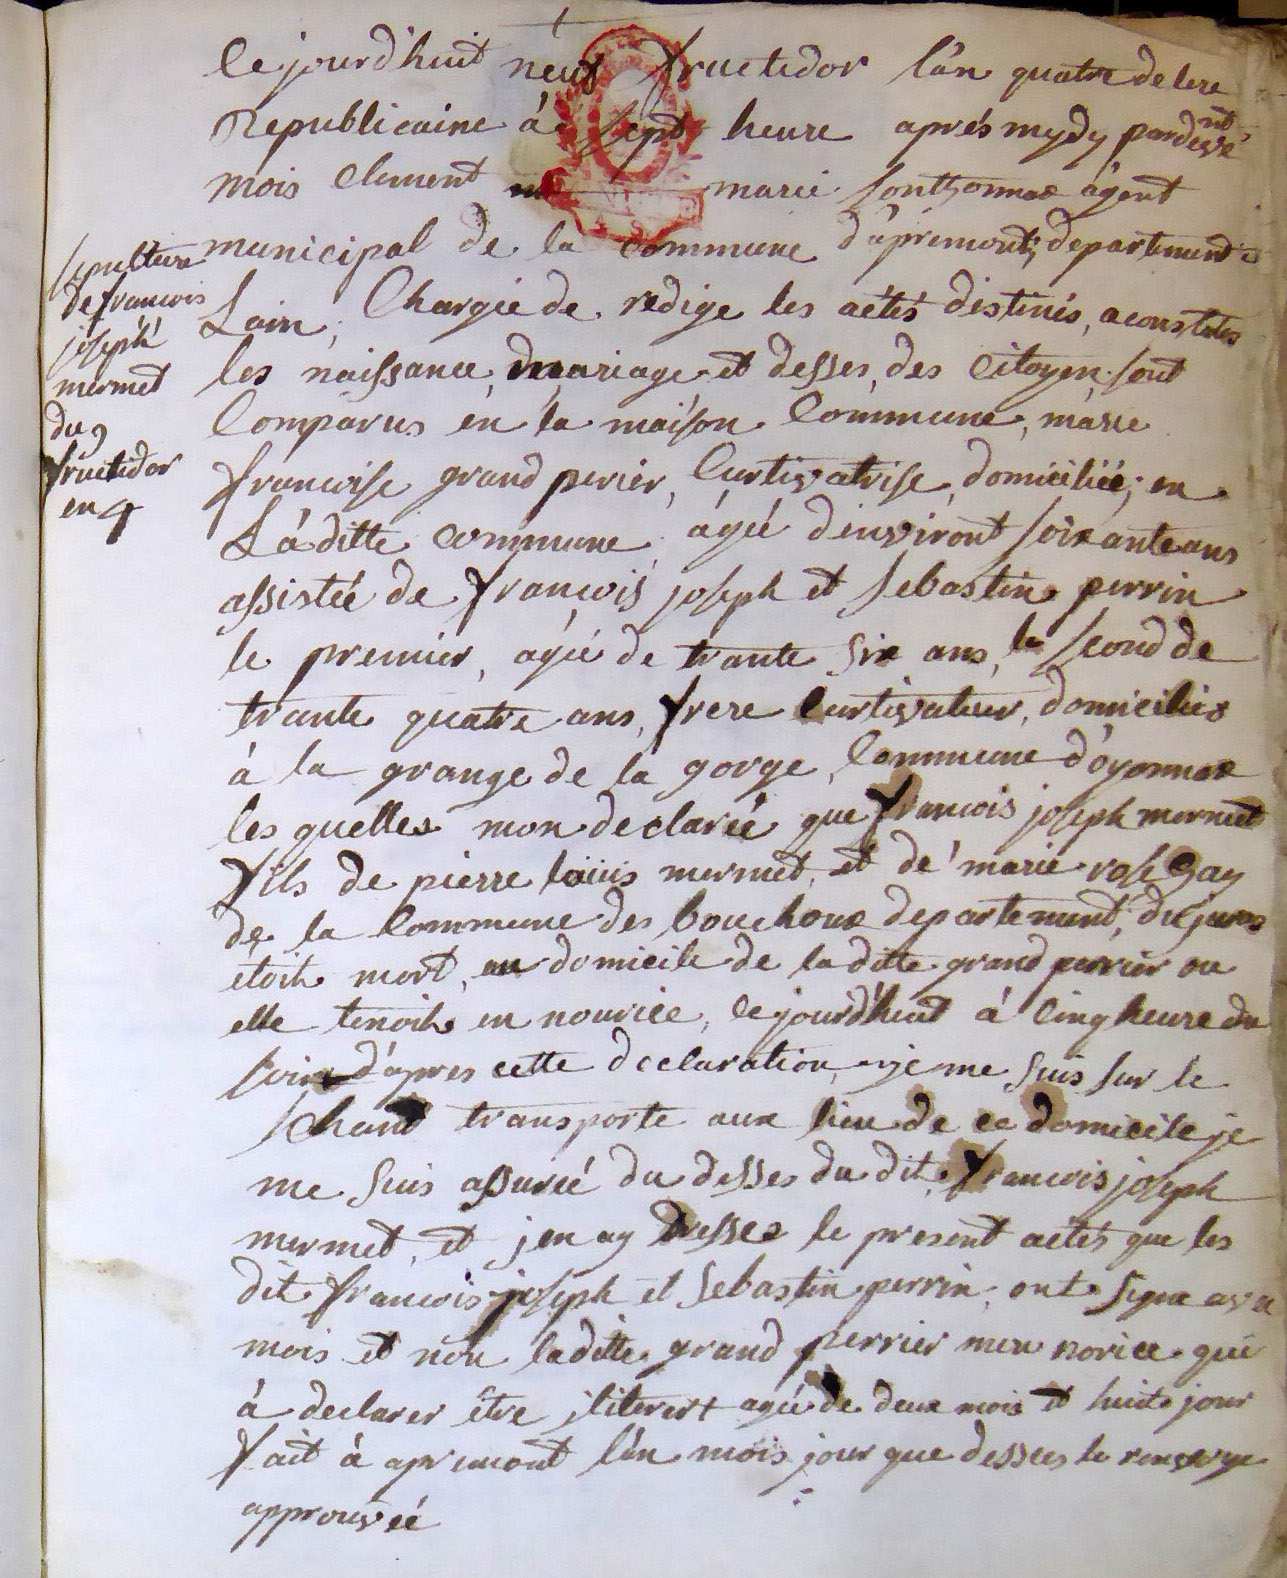 Cejourdhuit neuf fructidor l'an quatre de lere
Republicaine à sept heure aprés mydy pardevant
mois Clement marie Sonthonnax ágent
municipal de la Commune d'ápremont, departement de
Lain, Chargée de redige les actés destinés, aconstates
les naissance, mariage et desses, des Citoyen sont
Comparus en la maison Commune, marie
francoise grand perier, Curtivatrise, domiciliée, en
Láditte Commune ágée denviront soixante ans
assistée de francois joseph et sebastin perrin
le premier, agée de trante six ans, le second de
trante quatre ans, frere Curtivateur, domiciliés
à la grange de la gorge, Commune d'oyonnax
les quelles mon declareé que francois joseph mermet
fils de pierre louis mermet, et de marie rose gay
de la Commune des bouchoux departement, du juras
etoit mort, au domicile de la ditte grand perrier ou
elle tenoit en nourice, cejourd'huit à Cinq heure du
soir d'apres cette declaration, je me suis sur le
Chant transporte aux lieu de ce domicile je
me suis assureé du desses du dit francois joseph
mermet, et jen ay dresses le present actés que les
dit francois joseph et Sebastin perrin, ont signe ava
mois et non laditte grand perrier mere norice qui
à declarer être jliterert agée de deux mois et huit jour
fait à apremont l'an mois jour que dessus le renvoye
approuvée
sepulture
de francois
joséphé
mermet
du 9
fructidor
en 4